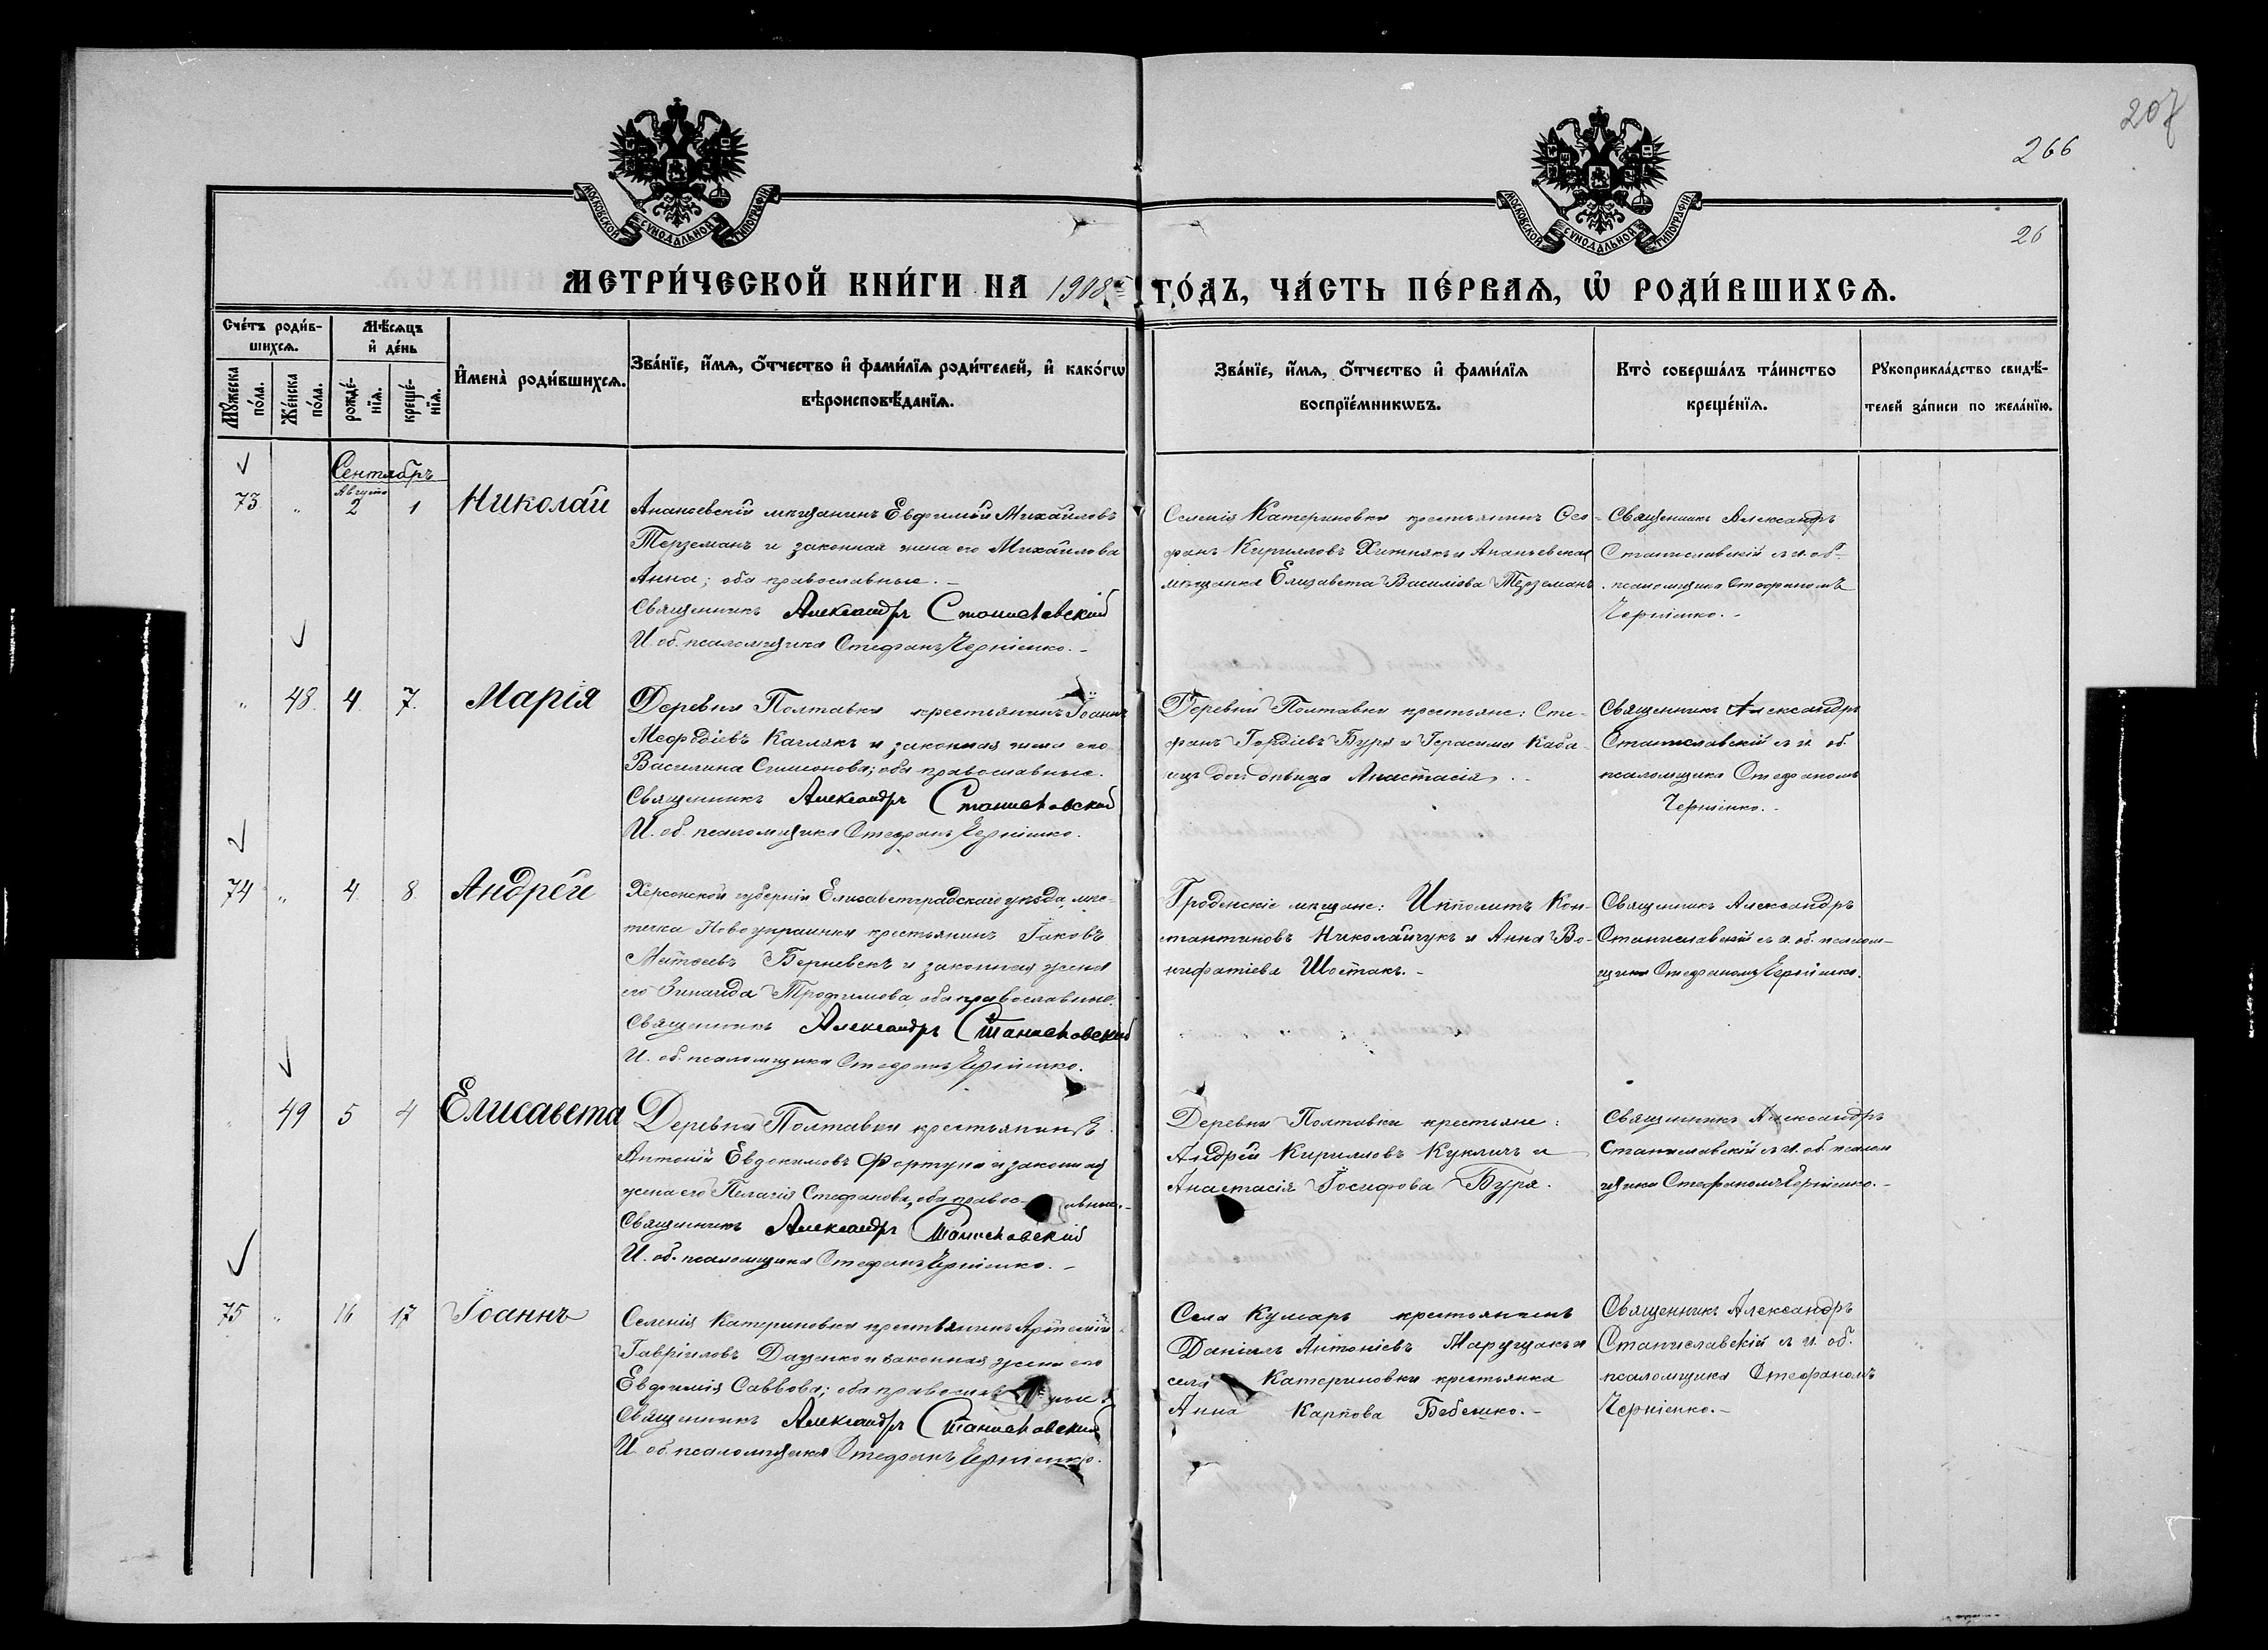 207
266
26
МОСКОВСКОЙ СѴНОДАЛЬНОЙ ТИПОГРАФІИ
МОСКОВСКОЙ СѴНОДАЛЬНОЙ ТИПОГРАФІИ
МЕТРИ́ЧЕСКОЙ КНИ́ГИ НА 1908 ГО́ДЪ, ЧА́СТЬ ПЕ́РВАѦ, Ѡ҆ РОДИ́ВШИХСѦ.
Сче́тъ роди́в-
шихсѧ.
Мꙋ́жеска
по́ла.
Же́нска
по́ла.
Мѣ́сѧцъ
и҆ де́нь
рожде́-
нїѧ.
креще́-
нїѧ.
И҆мена̀ роди́вшихсѧ.
Зва́нїе, и҆́мѧ, ѻ҆́тчество и҆ фами́лїѧ роди́телей, и҆ како́гѡ
вѣроисповѣ́данїѧ.
Зва́нїе, и҆́мѧ, ѻ҆́тчество и҆ фами́лїѧ
воспрїе́мникѡвъ.
Кто̀ соверша́лъ та́инство
креще́нїѧ.
Рꙋкоприкла́дство свидѣ́-
телей за́писи по жела́нїю.
Сентябрь
73 „ Августа 2 1 Николай
Ананьевскій мѣщанинъ Евфимій Михаиловъ
Терземанъ и законная жена его Михаилова
Анна; оба православные. –
Священникъ Александръ Станиславскій
И. об. псаломщика Стефанъ Черніенко. –
Селенія Катериновки крестьянинъ Ѳео-
фанъ Кирилловъ Хижнякъ и Ананьевская
мѣщанка Елизавета Василіева Терземанъ
Священникъ Александръ
Станиславскій съ и. об.
псаломщика Стефаномъ
Черніенко. –
„ 48. 4. 7. Марія
Деревни Полтавки крестьянинъ Іоаннъ
Меѳодіевъ Каглякъ и законная жена его
Василина Симонова; оба православные.
Священникъ Александръ Станиславскій
И. об. псаломщика Стефанъ Черніенко.
Деревни Полтавки крестьяне: Сте-
фанъ Гордіевъ Буря и Герасима Каба-
ецъ дочь дѣвица Анастасія. –
Священникъ Александръ
Станиславскій съ и. об.
псаломщика Стефаномъ
Черніенко. –
74 „ 4. 8. Андрей
Херсонской губерніи Елисаветградскаго уѣзда, мѣс-
течка Новоукраинки крестьянинъ Іаковъ
Матѳеевъ Берневекъ и законная жена
его Зинаида Трофимова, оба православные.
Священникъ Александръ Станиславскій
И. об. псаломщика Стефанъ Черніенко.
Гроденскіе мѣщане: Ипполитъ Кон-
стантиновъ Николайчукъ и Анна Во-
нифатіева Шостакъ. –
Священникъ Александръ
Станиславскій съ и. об. псалом-
щика Стефаномъ Черніенко.
„ 49 5 4 Елисавета
Деревни Полтавки крестьянинъ
Антоній Евдокимовъ Фортуна и законная
жена его Пелагія Стефанова, оба правос- авные. –
Священникъ Александръ Станиславскій
И. об. псаломщика Стефанъ Черніенко. –
Деревни Полтавки крестьяне:
Андрей Кирилловъ Кукличъ и
Анастасія Іосифова Буря.
Священникъ Александръ
Станиславскій съ и. об. псалом
щика Стефаномъ Черніенко. –
75 „ 16 17 Іоаннъ
Селенія Катериновки крестьянинъ Артемій
Гавріиловъ Даценко и законная жена его
Евфимія Саввова; оба православные
Священникъ Александръ Станиславскій
И. об. псаломщика Стефанъ Черніенко.
Села Кумаръ крестьянинъ
Даніилъ Антоніевъ Марущакъ и
села Катериновки крестьянка
Анна Карпова Бебешко. –
Священникъ Александръ
Станиславскій съ и. об.
псаломщика Стефаномъ
Черніенко. –